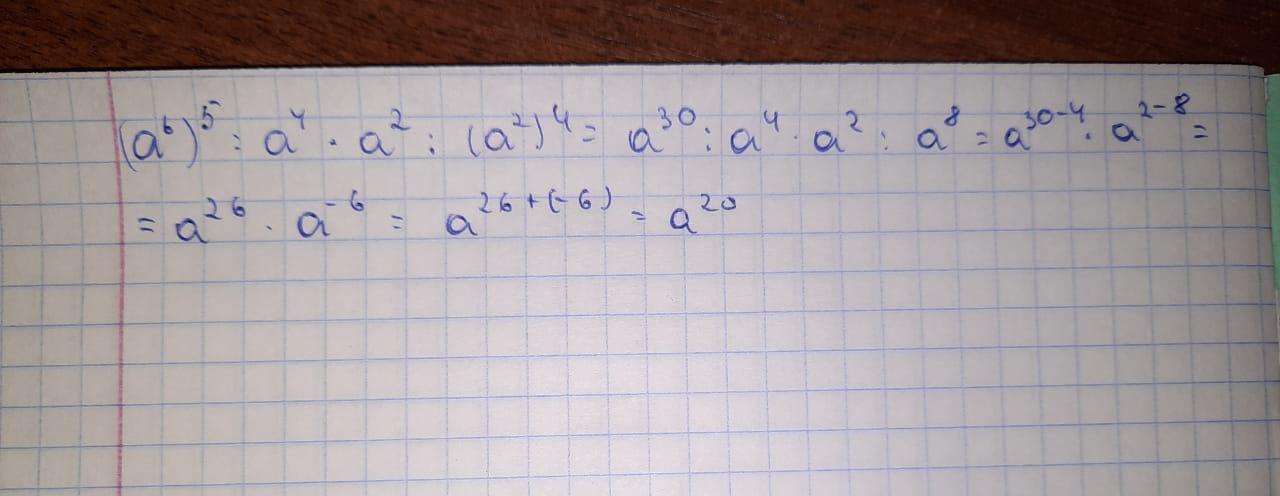 (a⁶)⁵ : a⁴ · a² : (a²)⁴ = a³⁰ : a⁴ · a² : a⁸ = a³⁰⁻⁴ · a²⁻⁸ =
= a²⁶ · a⁻⁶ = a²⁶⁺⁽⁻⁶⁾ = a²⁰